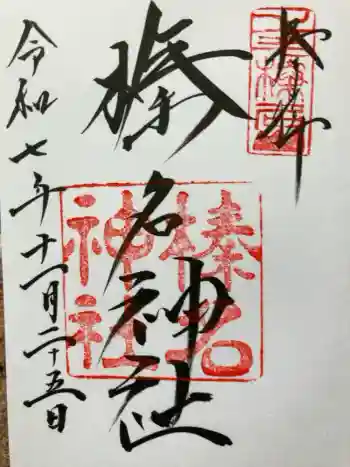 奉拝
榛名神社
榛名
神社
令和七年十一月二十五日